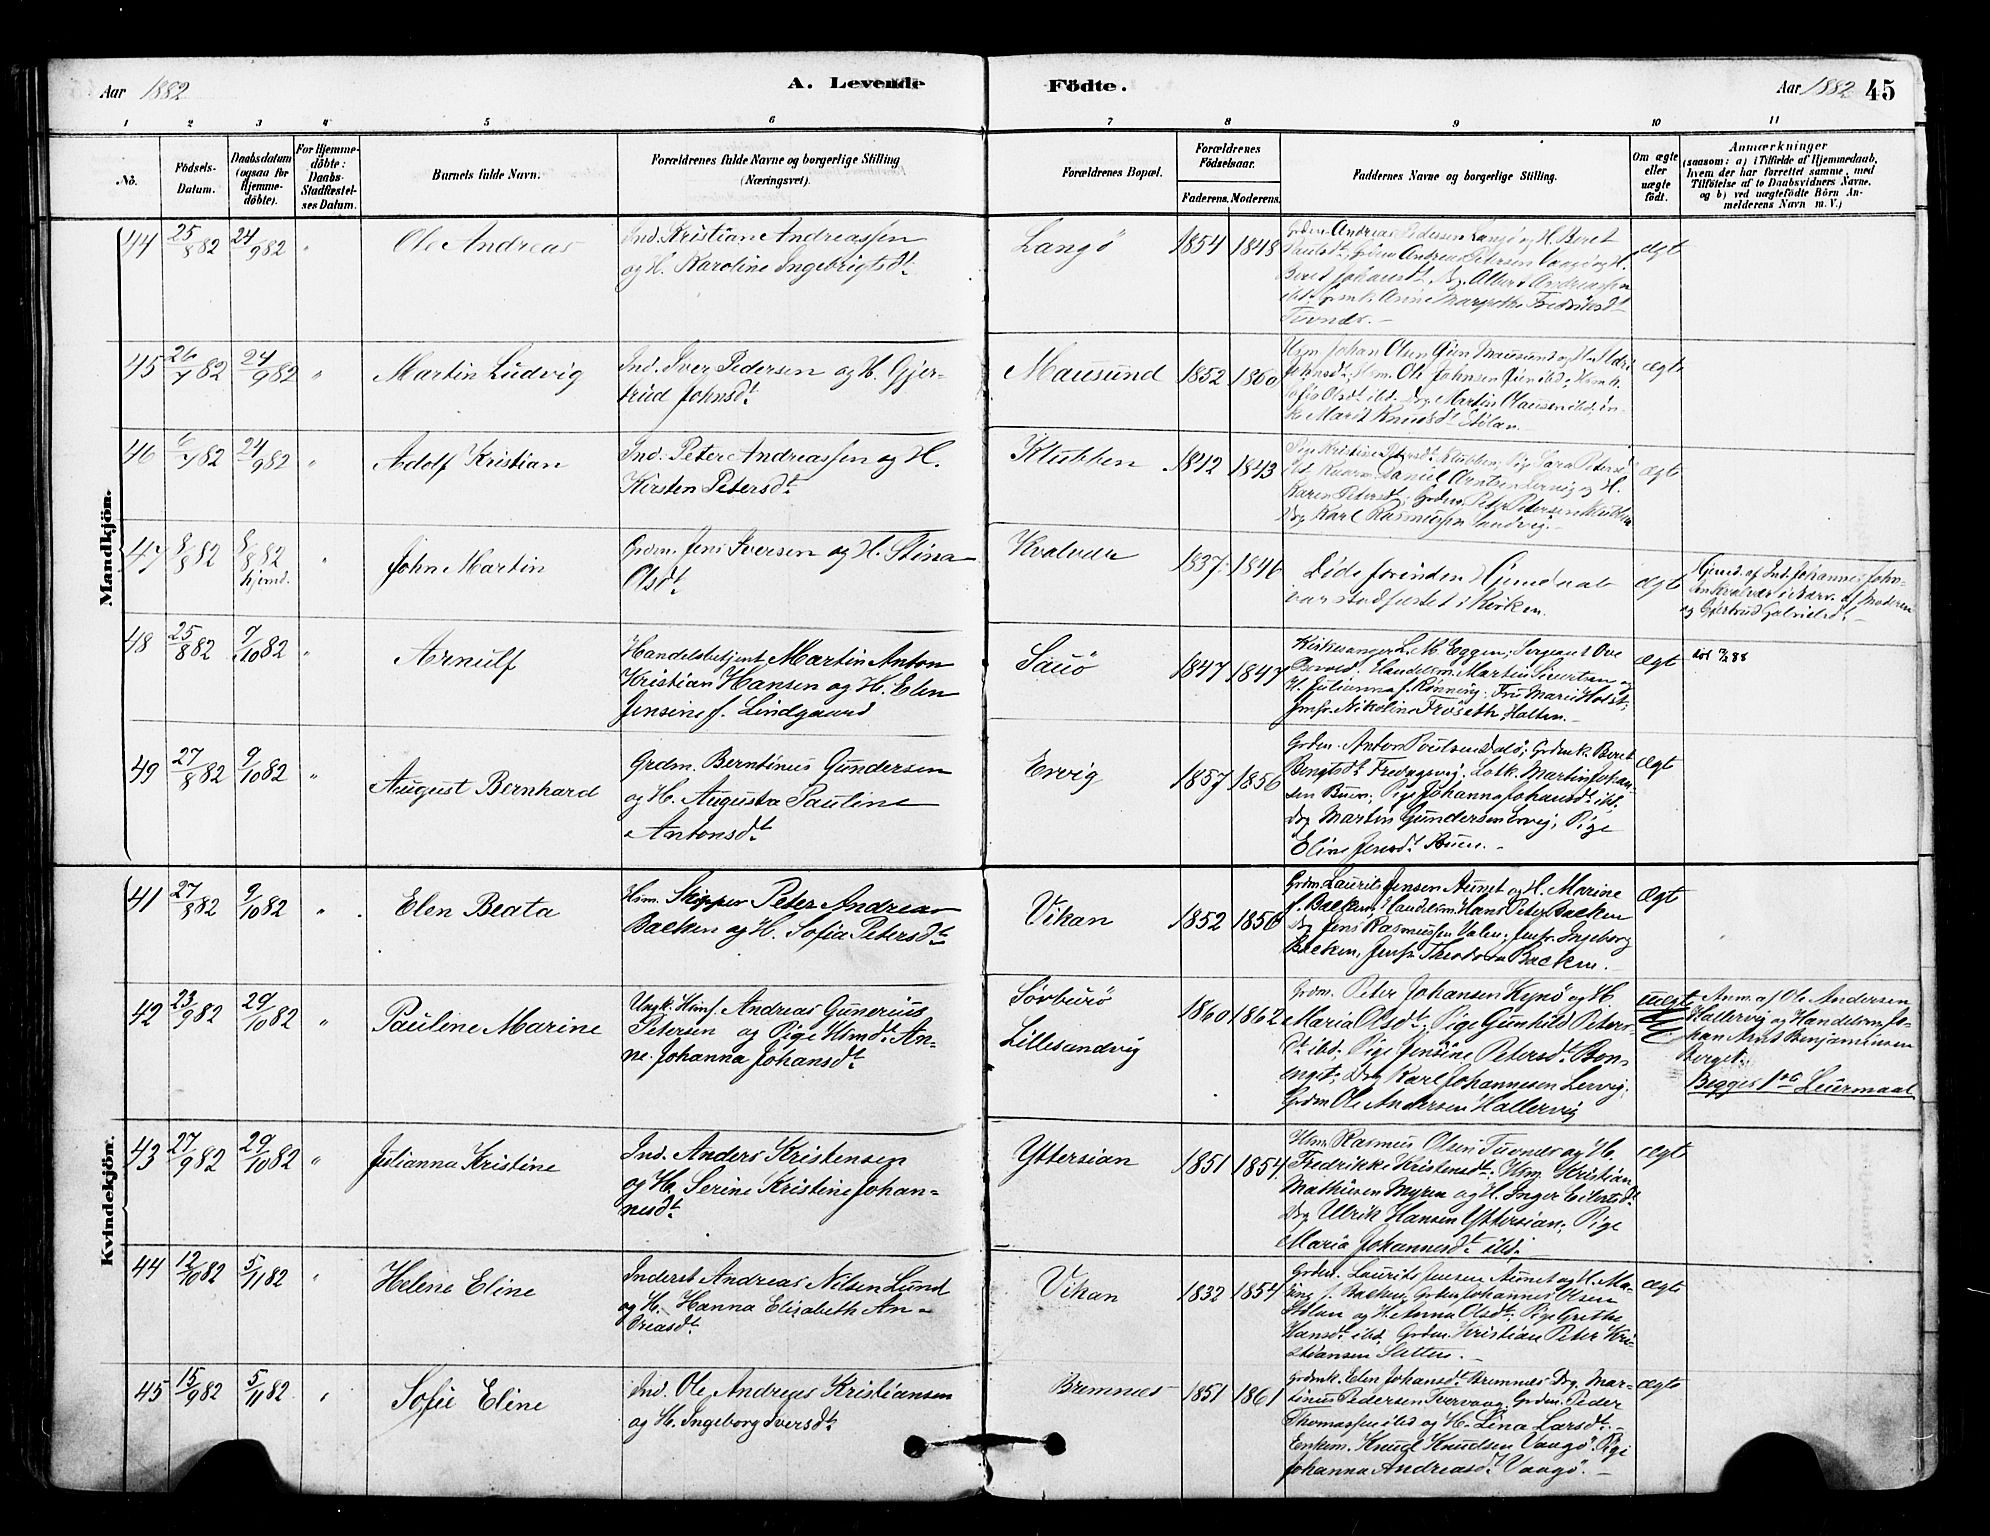 Aar 1882
A. Levende
Födte.
Aar 1882 45
1 2 3 4 5 6 7 8 9 10 11
No.
Födsels-
Datum.
Daabsdatum
(ogsaa for
Hjemme-
döbte).
For Hjemme-
döbte:
Daabs-
Stadfæstel-
ses Datum.
Barnets fulde Navn.
Forældrenes fulde Navne og borgerlige Stilling
(Næringsvei).
Forældrenes Bopæl.
Forældrenes
Födselsaar.
Faderens. Moderens.
Faddernes Navne og borgerlige Stilling.
Om ægte
eller
uægte
födt.
Anmærkninger
(saasom: a) i Tilfælde af Hjemmedaab,
hvem der har forrettet samme, med
Tilföielse af to Daabsvidners Navne,
og b) ved uægtefödte Börn An-
melderens Navn m. V.)
Mandkjön.
44 25/8 82 24/9 82 "
Ole Andreas
Ind. Kristian Andreassen
og H. Karoline Ingebrigtsdt.
Langö
1854 1848
Grdm. Andreas Pedersen Langö og H. Beret
ægt
45 26/7 82 24/9 82 "
Martin Ludvig
Ind. Iver Pedersen og H. Gjer-
trud Johnsdt.
Mausund
1852 1860
Johnsdt., Ole Johnsen
Sofie Olsdt. ibd. Ug. Martin Olausen ibd.
Marit Knudsdt. Stölan.
ægt
46 6/7 82 24/9 82 "
Adolf Kristian
Ind. Peter Andreassen og H.
Kirsten Petersdt.
Klubben
1842 1843
Pige Kristine Petersdt. Klubben, Pige Sara Petersd
ibd. Daniel Arntsen Lervig og H.
Karen Petersdt; Grdm. Peter Petersen Klubben
Ug. Karl Rasmussen Sandvig.
ægt
47 8/8 82 8/8 82 hjemd. "
John Martin
Grdm. Jens Iversen og H. Stina
Olsdt.
Kvalvær
1837 1846
Döde forinden Hjemdaab
var stadfæstet i Kirken.
ægt
Hjemd. af Ind. Johannes John-
sen Kvalvær i Nærv. af Moderen
og Gjertrud Gabrielsdt.
48 25/8 82 9/10 82 "
Arnulf
Handelsbetjent Martin Anton
Kristian Hansen og H. Elen
Jensine f. Lindgaard
Sauö
1847 1847
Kirkesanger L. M. Eggen; Sergeant Ove
Handelsm. Martin Sivertsen og
H. Julianna f. Rönning; Fru Marie Holst;
Jmfr. Nikoline Fröseth, Halten.
ægt
49 27/8 82 9/10 82 "
August Bernhard
Grdm. Berntinus Gundersen
og H. Augusta Pauline
Antonsdt.
Ervig
1857 1856
Grdm. Anton Poulsen Dalö; Grdmk. Beret
Bengtsdt. Fredagsvig. Lotk. Martin Johan-
sen Buen; Pige Johanna Johansdt. ibd.
Ug. Martin Gundersen Ervig; Pige
Eline Jensdt. Buen.
ægt
Kvindekjön.
41 27/8 82 9/10 82 "
Elen Beata
Hsm. Skipper Peter Andreas
Backen og H. Sofia Petersdt.
Vikan
1852 1856
Grdm. Laurits Jensen Aunet og H. Marine
f. Backen, Handelsm. Hans Peter Backen
Ug. Jens Rasmussen Valen; Jmfr. Ingeborg
Backen, Jmfr. Theodora Backen.
Ægt
42 23/9 82 29/10 82 "
Pauline Marine
Ungk. Hsmf. Andreas Gunerius
Petersen og Pige Hsmdt. An-
ne Johanna Johansdt.
Sörburö
Lillesandvig
1860 1862
Grdm. Peter Johansen Kynö og H.
Maria Olsdt; Pige Gunhild Peters-
dt. ibd; Pige Jensine Petersdt. Bon-
enget; Ug. Karl Johannesen Lervig;
Grdm. Ole Andersen Hallervig
uægt
Anm. af Ole Andersen
Hallervig og Handelsm. Jo-
han Arnt Benjaminsen
Berget.
Begges 1ste Leiermaal
43 27/9 82 29/10 82 "
Julianna Kristine
Ind. Anders Kristensen
og H. Serine Kristine Johan-
nesdt.
Yttersian
1851 1854
Hsm. Rasmus Olsen Tuvnes og H.
Fredrikke Kristensdt. Hsm. Kristian
Mathisen Myren og H. Inger
Ug. Ulrik Hansen Yttersian; Pige
Maria Johannesdt. ibd.
ægt
44 12/10 82 5/11 82 "
Helene Eline
Inderst Andreas Nilsen Lund
og H. Hanna Elisabeth An-
dreasdt.
Vikan
1832 1854
Grdm. Laurits Jensen Aunet og H. Ma-
rine f. Backen, Grdm. Johannes Olsen
Stölan og H. Anna Olsdt; Pige Grethe
Hansdt. ibd. Grdm. Kristian Peter Kri-
stiansen Sætter.
ægte
45 15/9 82 5/11 82 "
Sofie Eline
Ind. Ole Andreas Kristiansen
og H. Ingeborg Iversdt.
Bremnes
1851 1861
Grdmk. Elen Johansdt. Bremnes Ug. Mar-
tinus Pedersen Tvervaag; Grdm. Peder
Thomassen ibd og H. Lina Larsdt.
Enkem. Knud Knudsen Vaagö. Pige
Johanna Andreasdt. Vaagö.
ægte